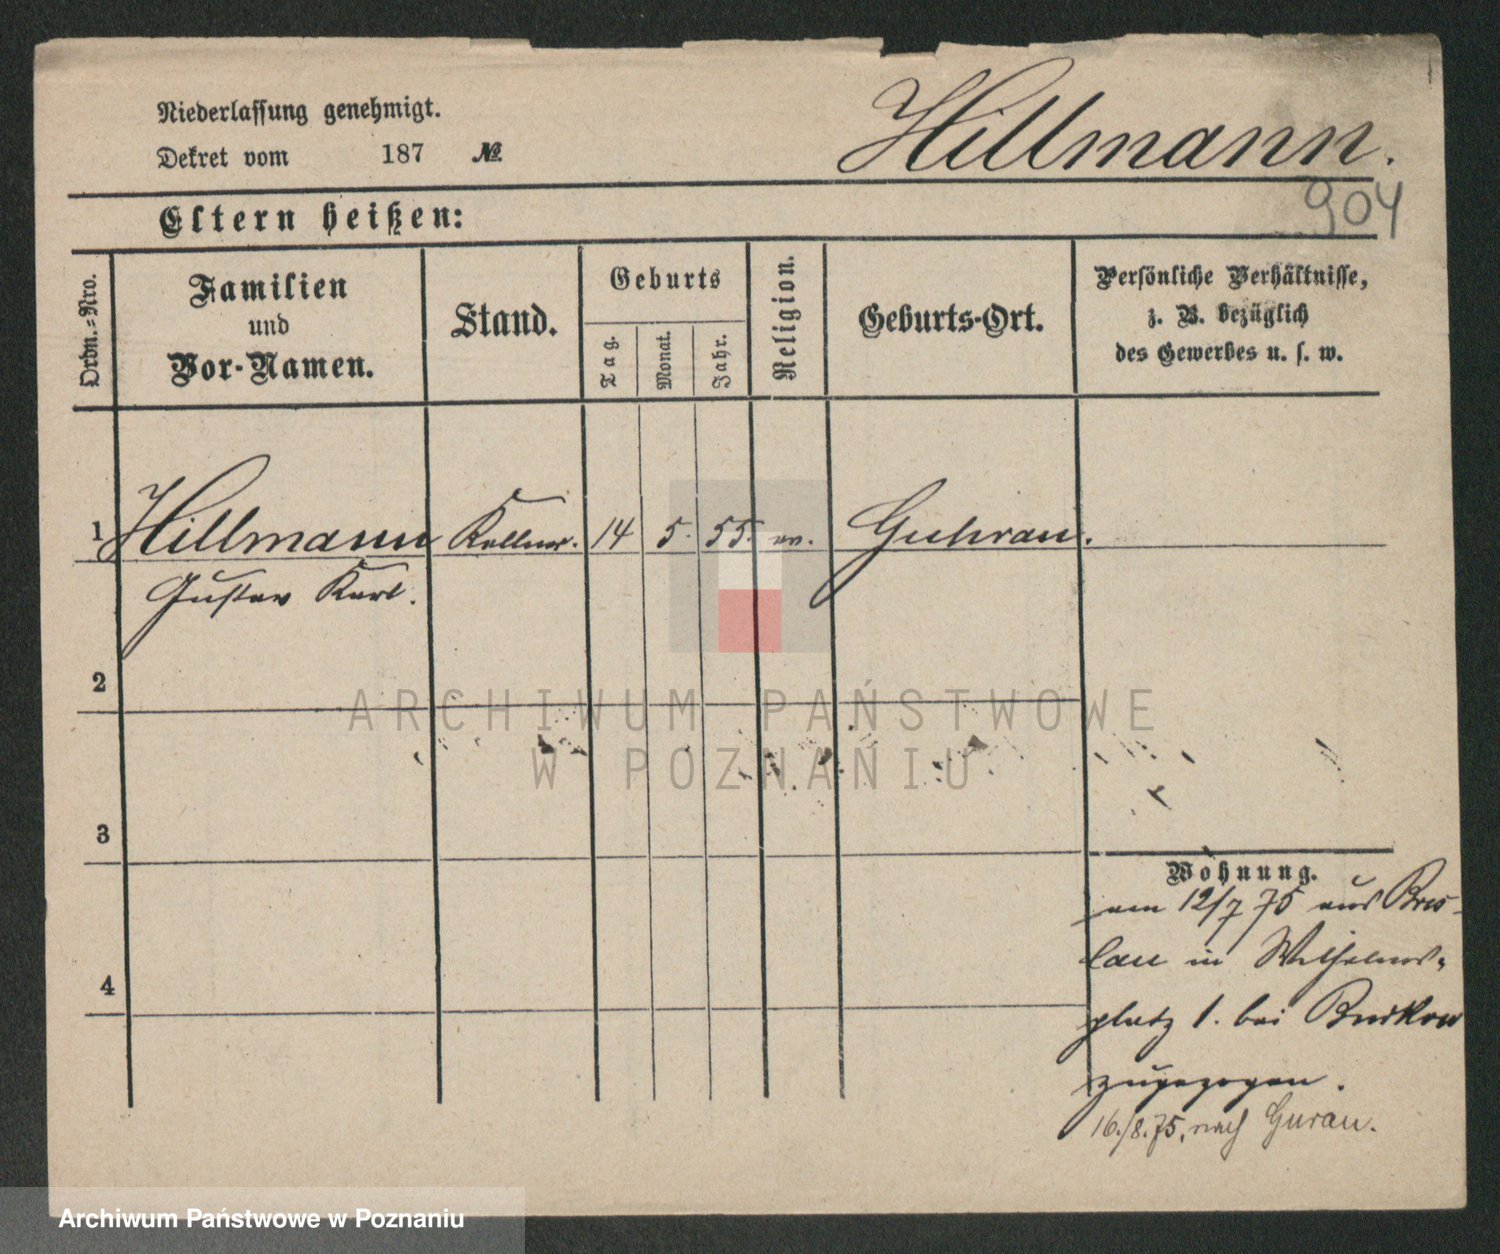 Niederlassung genehmigt.
Dekret vom 187 №
Hillmann.
904
Eltern heißen:
Ordn.-Nro.
Familien
und
Vor-Namen.
Stand.
Geburts
Tag.
Monat.
Jahr.
Religion.
Geburts-Ort.
Persönliche Verhältnisse,
z. B. bezüglich
des Gewerbes u. s. w.
1 Hillmann Kellner. 14 5. 55. ev. Guhrau.
Gustav Karl.
2
ARCHIWUM PAŃSTWOWE
W POZNANIU
3
Wohnung.
am 12/7 75 aus Bres-
lau in Wilhelms-
4
platz 1. bei
zugezogen.
16./8.75. nach Gurau.
Archiwum Państwowe w Poznaniu